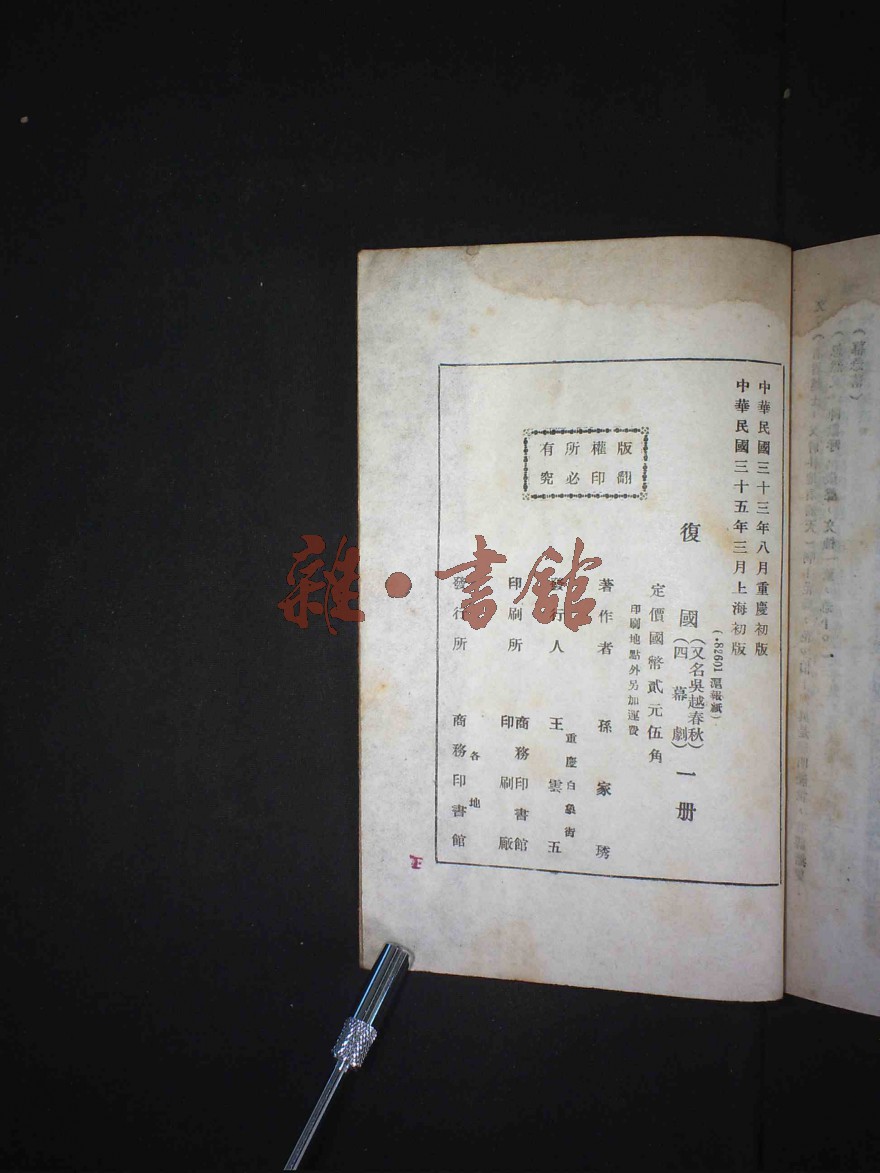 中華民國三十三年八月重慶初版
中華民國三十五年三月上海初版
(·82601 滬報紙)
復國(又名吳越春秋)(四幕劇)一册
定價國幣貳元伍角
印刷地點外另加運費
版權所有
翻印必究
著作者 孫家琇
重慶白象街
發行人 王雲五
印刷所 商務印書館印刷廠
各地
發行所 商務印書館
雜·書館